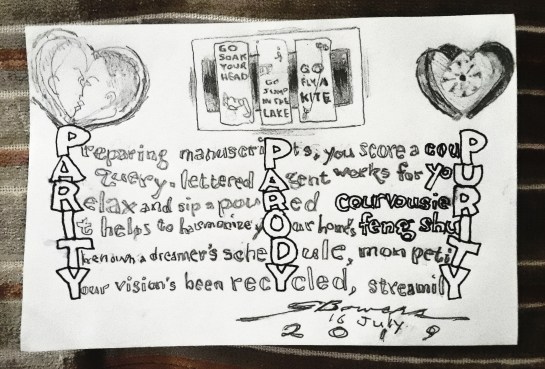 GO
SOAK
YOUR
HEAD
GO JUMP
IN THE
LAKE
GO
FLY A
KITE
Preparing manuscriPts, you score a couP
A query-lettered Agent works for yoU
Relax and sip a pouRed courvousieR
It helps to harmonize yOur home's feng shuI
Then own a dreamer's scheDule, mon petiT
Your vision's been recYcled, streamilY
SBowers
16 July
2019